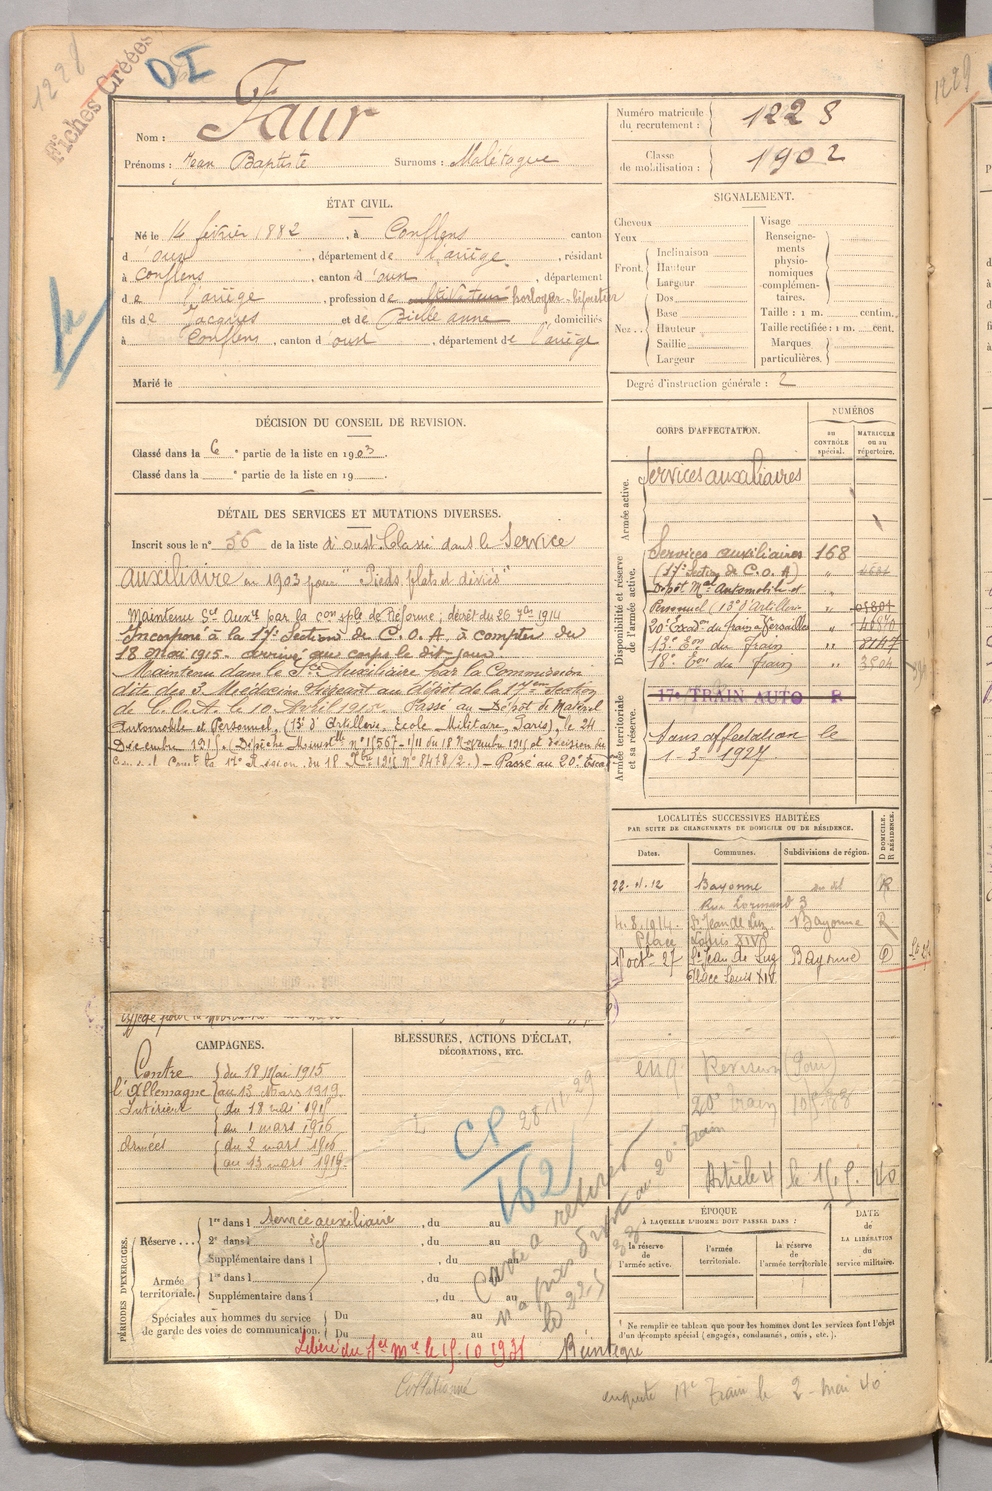 1228
Fiches Créées
DI
Nom : Faur
Prénoms : Jean Baptiste Surnoms : Malétaque
Numéro matricule du recrutement : 1228
Classe de mobilisation : 1902
ÉTAT CIVIL.
Né le 14 février 1882, à Conflens canton
d'oust, département de l'ariège, résidant
à Conflens, canton d'oust, département
de l'ariège, profession de cultivateur horloger-bijoutier
fils de Jacques et de Biche anne domiciliés
à Conflens, canton d'oust, département de l'ariège
Marié le
SIGNALEMENT.
Cheveux
Yeux
Front. Inclinaison
Hauteur
Largeur
Nez. Dos
Base
Hauteur
Saillie
Largeur
Visage
Renseignements physionomiques complémentaires.
Taille : 1 m. centim.
Taille rectifiée : 1 m. cent.
Marques particulières.
Degré d'instruction générale : 2
DÉCISION DU CONSEIL DE REVISION.
Classé dans la 6e partie de la liste en 1903.
Classé dans la e partie de la liste en 19 .
DÉTAIL DES SERVICES ET MUTATIONS DIVERSES.
Inscrit sous le n° 56 de la liste d'oust. Classé dans le Service
auxiliaire en 1903 pour "Pieds plats et déviés"
Maintenu Sce Auxre par la Con sple de Réforme ; décret du 26 7bre 1914
Incorporé à la 17e Section de C. O. A, à compter du
18 Mai 1915. Arrivé au corps le dit jour.
Maintenu dans le Sce Auxiliaire par la Commission
dite des 3 Médecins siégeant au dépôt de la 17eme Section
de C. O. A le 10 Avril 1915. Passé au Dépôt de Matériel
Automobile et Personnel, (13e d'Artillerie, Ecole Militaire, Paris), le 24
Décembre 1915. (Dépêche Ministlle n° 15567-1/11 du 18 Novembre 1915 et décision du
Génal Comt la 17e Région du 18 Xbre 1915 n° 8478/2.) – Passé au 20e Escon
CORPS D'AFFECTATION.
NUMÉROS
au CONTRÔLE spécial.
MATRICULE ou au répertoire.
Armée active.
Services auxiliaires
Disponibilité et réserve de l'armée active.
Services auxiliaires 168
(17e Section de C. O. A) "
Dépôt Mel Automobile et
Personnel (13e d'Artillerie "
20e Escadon du train à Versailles "
13e Eon du Train " 8147
18e Eon du Train " 3504
Armée territoriale et sa réserve.
17e TRAIN AUTO R
Sans affectation le
1-3-1927.
LOCALITÉS SUCCESSIVES HABITÉES
PAR SUITE DE CHANGEMENTS DE DOMICILE OU DE RÉSIDENCE.
Dates. Communes. Subdivisions de région. D DOMICILE. R RÉSIDENCE.
Bayonne R
Rue Lormand 3
4.8.1914. St Jean de Luz Bayonne R
Place Louis XIV
1er octbre 27 St Jean de Luz Bayonne D
Place Louis XIV
20e Train
Article 4 le 40
CAMPAGNES.
Contre l'Allemagne du 18 Mai 1915
au 13 Mars 1919.
Intérieur du 18 mai 1915
au 1 mars 1916
Armées du 2 mars 1916
au 13 mars 1919.
BLESSURES, ACTIONS D'ÉCLAT,
DÉCORATIONS, ETC.
CP
162
28/11/29
Carte a retirer
PÉRIODES D'EXERCICES.
Réserve... 1re dans l Service auxiliaire, du au
2e dans l , du au
Supplémentaire dans l , du au
Armée territoriale. 1re dans l , du au
Supplémentaire dans l , du au
Spéciales aux hommes du service de garde des voies de communication. Du au
Du au
ÉPOQUE
À LAQUELLE L'HOMME DOIT PASSER DANS :
la réserve de l'armée active.
l'armée territoriale.
la réserve de l'armée territoriale.
DATE de LA LIBÉRATION du service militaire.
Ne remplir ce tableau que pour les hommes dont les services font l'objet
d'un décompte spécial (engagés, condamnés, omis, etc.).
Libéré du Sce Mre le 15-10 1931 Réintégré
Collationné
enquete 17e Train le 2-mai 40
1229